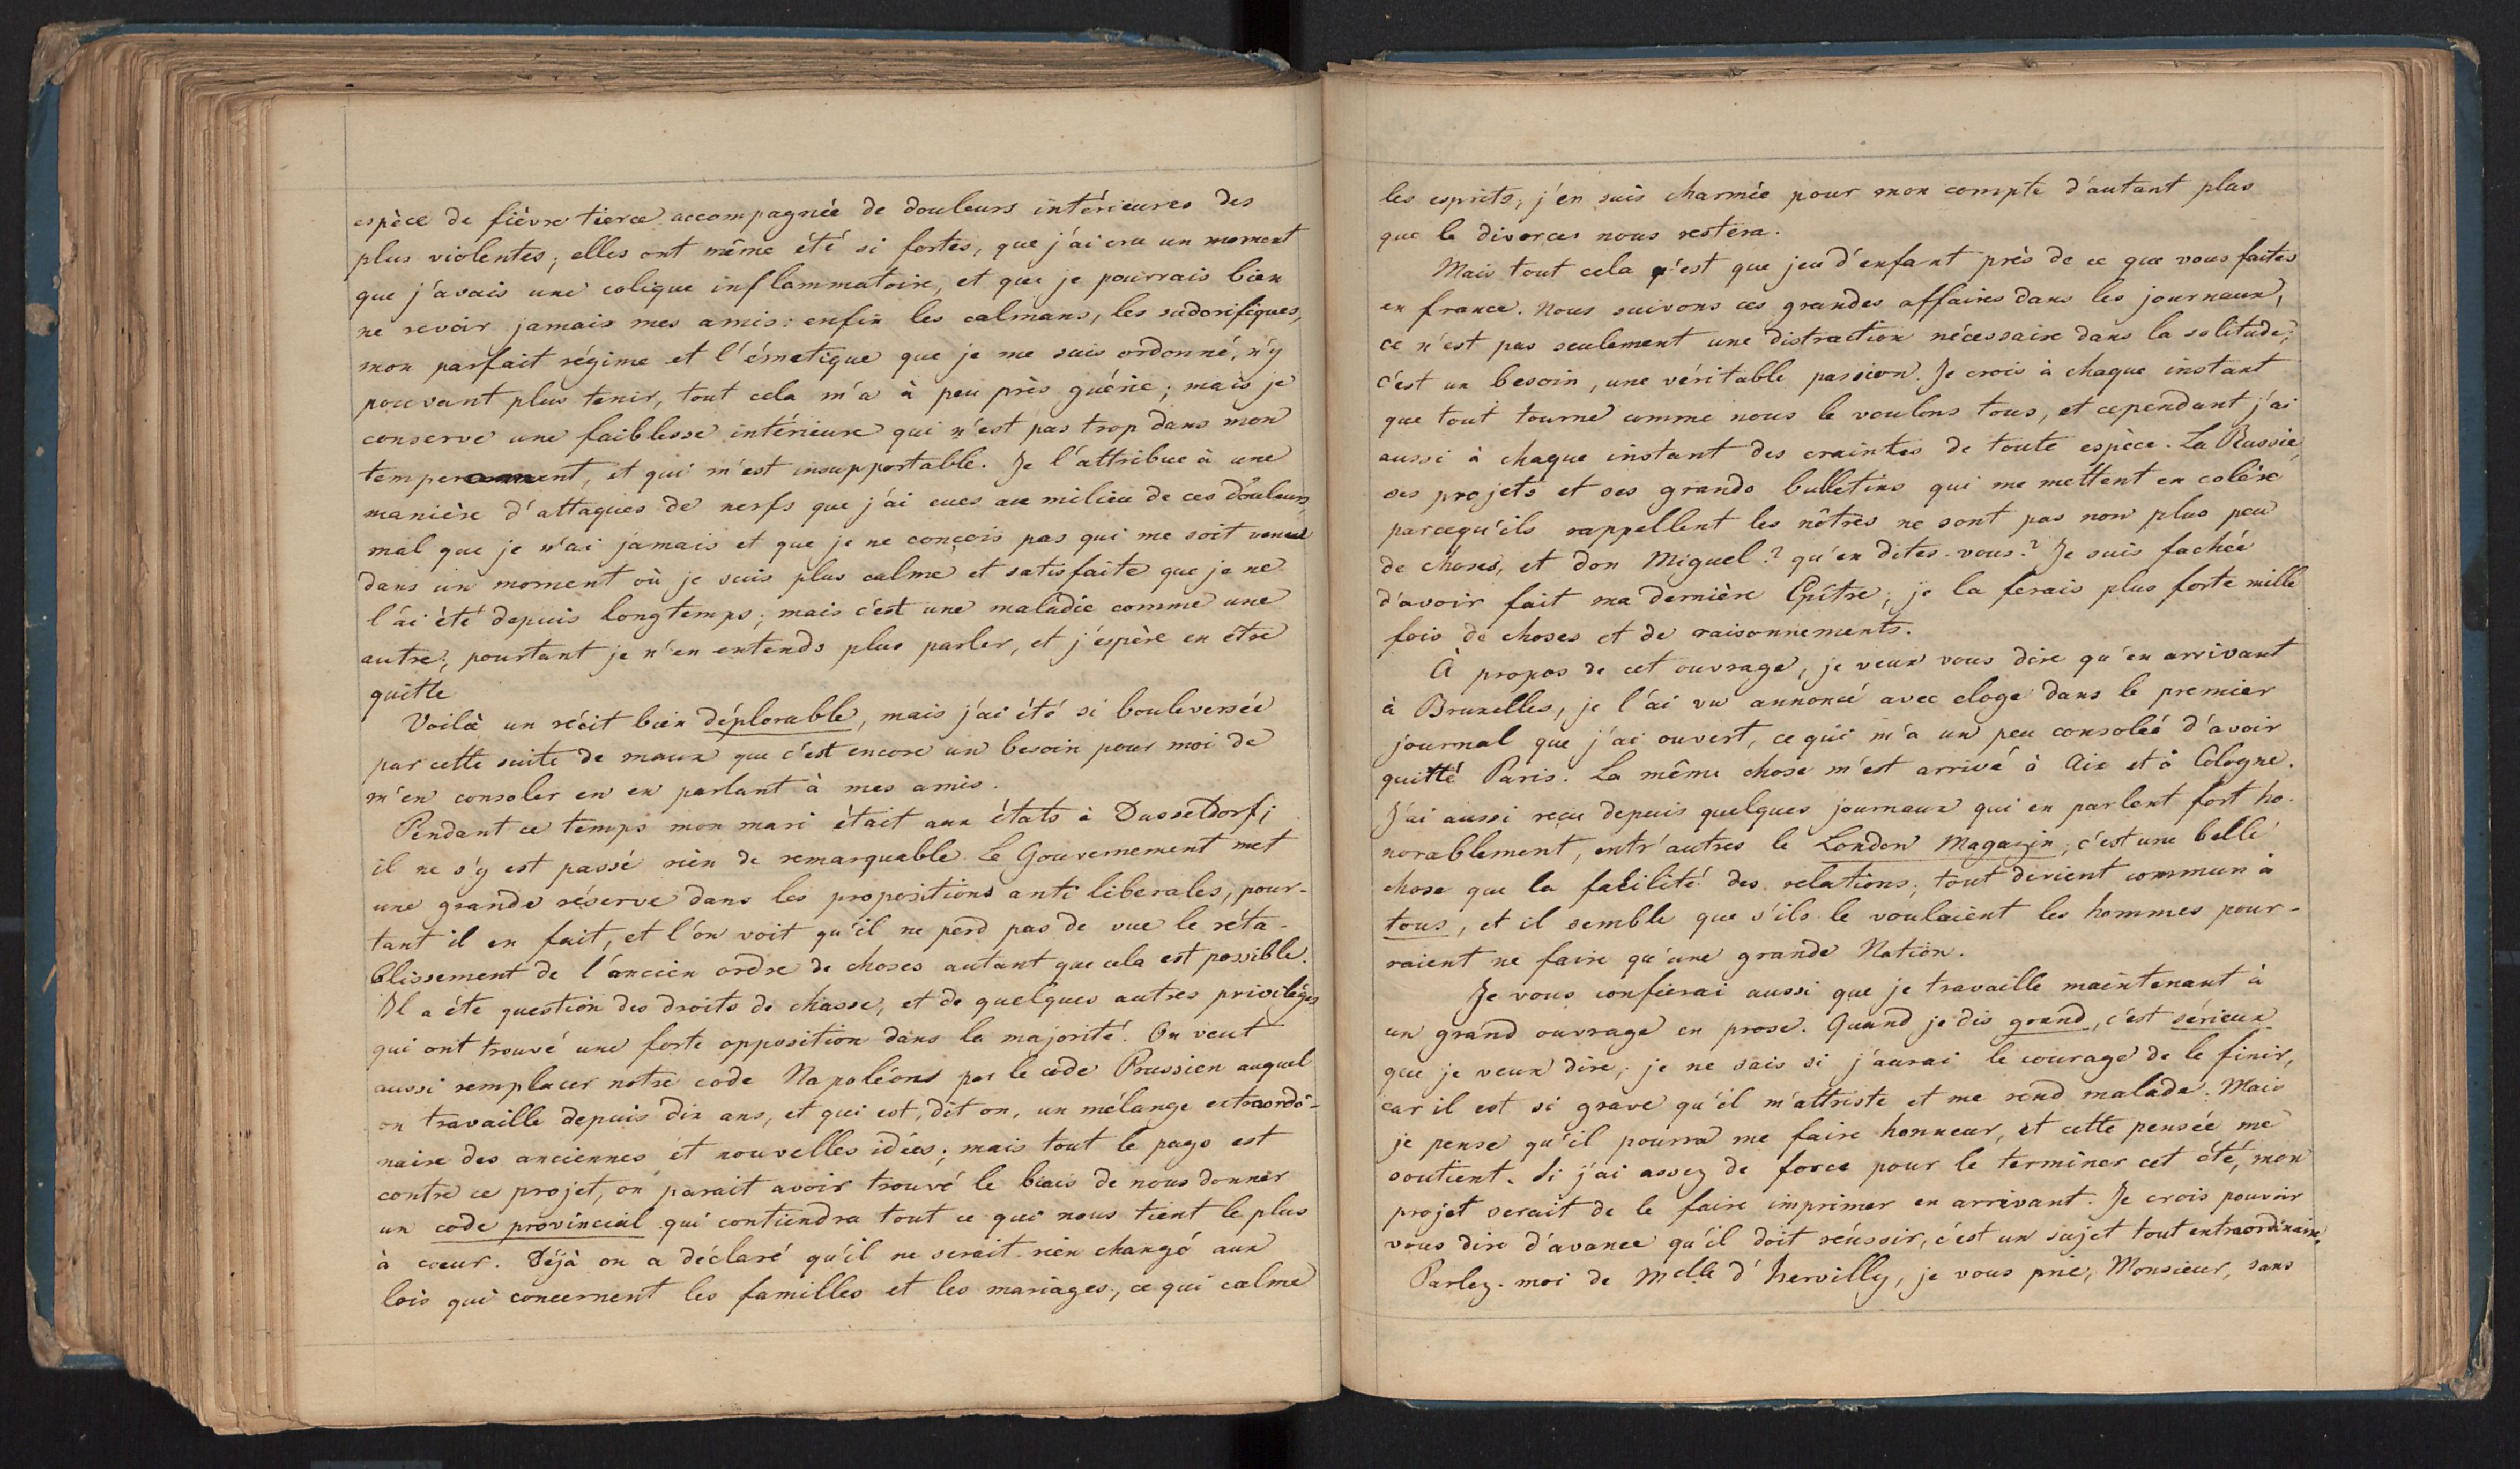 espèce de fièvre tierce accompagnée de douleurs intérieures des
plus violentes; elles ont même été si fortes, que j'ai cru un moment
que j'avais une colique inflammatoire, et que je pourrais bien
ne revoir jamais mes amis: enfin les calmans, les sudorifiques,
mon parfait régime et l'émetique que je me suis ordonné, n'y
pouvant plus tenir, tout cela m'a à peu près guérie; mais je
conserve une faiblesse intérieure qui n'est pas trop dans mon
temperament, et qui m'est insupportable. Je l'attribue à une
manière d'attaques de nerfs que j'ai eues au milieu de ces douleurs,
mal que je n'ai jamais et que je ne conçois pas qui me soit venue
dans un moment où je suis plus calme et satisfaite que je ne
l'ai été depuis longtemps; mais c'est une maladie comme une
autre; pourtant je n'en entends plus parler, et j'espère en être
quitte
Voilà un récit bien déplorable, mais j'ai été si bouleversée
par cette suite de maux que c'est encore un besoin pour moi de
m'en consoler en en parlant à mes amis.
Pendant ce temps mon mari était aux états à Dusseldorf;
il ne s'y est passé rien de remarquable. Le Gouvernement met
une grande réserve dans les propositions anti liberales, pour-
tant il en fait, et l'on voit qu'il ne perd pas de vue le réta-
blissement de l'ancien ordre de choses autant que cela est possible.
Il a éte question des droits de chasse, et de quelques autres privilèges
qui ont trouvé une forte opposition dans la majorité. On veut
aussi remplacer notre code Napoléons par le code Prussien auquel
on travaille depuis dix ans, et qui est, dit on, un mélange extraordi-
naire des anciennes et nouvelles idées; mais tout le pays est
contre ce projet, on parait avoir trouvé le biais de nous donner
un code provincial qui contiendra tout ce qui nous tient le plus
à coeur. Déjà on a déclaré qu'il ne serait rien changé aux
lois qui concernent les familles et les mariages, ce qui calme
les esprits; j'en suis charmée pour mon compte d'autant plus
que le divorces nous restera.
Mais tout cela n'est que jeu d'enfant près de ce que vous faites
en france. Nous suivons ces grandes affaires dans les journaux,
ce n'est pas seulement une distraction nécessaire dans la solitude;
c'est un besoin, une véritable passion. Je crois à chaque instant
que tout tourne comme nous le voulons tous, et cependant j'ai
aussi à chaque instant des craintes de toute espèce. La Russie,
ses projets et ses grands bulletins qui me mettent en colère
parcequ'ils rappellent les nôtres ne sont pas non plus peu
de choses, et don Miguel? qu'en dites-vous? Je suis fachée
d'avoir fait ma dernière Epître; je la ferais plus forte mille
fois de choses et de raisonnements.
À propos de cet ouvrage, je veux vous dire qu'en arrivant
à Bruxelles, je l'ai vu annoncé avec eloge dans le premier
journal que j'ai ouvert, ce qui m'a un peu consolée d'avoir
quitté Paris. La même chose m'est arrivé à Aix et à Cologne.
J'ai aussi reçu depuis quelques journaux qui en parlent fort ho-
norablement, entr'autres le London Magazin; c'est une belle
chose que la facilité des relations; tout devient commun à
tous, et il semble que s'ils le voulaient les hommes pour-
raient ne faire qu'une grande Nation.
Je vous confierai aussi que je travaille maintenant à
un grand ouvrage en prose. Quand je dis grand, c'est sérieux
que je veux dire; je ne sais si j'aurai le courage de le finir,
car il est si grave qu'il m'attriste et me rend malade. Mais
je pense qu'il pourra me faire honneur, et cette pensée me
soutient. Si j'ai assez de force pour le terminer cet été, mon
projet serait de le faire imprimer en arrivant. Je crois pouvoir
vous dire d'avance qu'il doit réussir, c'est un sujet tout extraordinaire.
Parlez-moi de Melle d'hervilly, je vous prie, Monsieur, sans